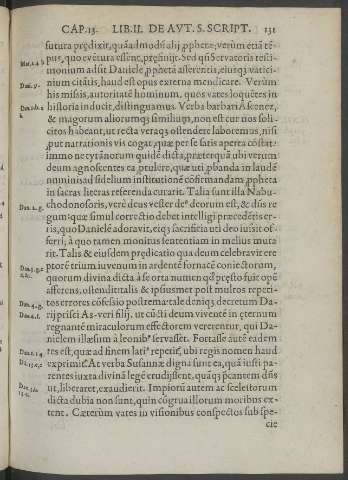 CAP. 15. LIB. II. DE AVT. S. SCRIPT. 131
futura prędixit, quādmodū alij ꝓphetę: verùm etiā tē-
pus, quo evētura eſſēnt, pręfinijt. Sed qſi Servatoris teſti-
monium adſit Danielē ꝓphetā aſſerentis, eiusq; vatici-
nium citātis, haud eſt opus externa mendicare. Verùm
his miſsis, autoritatē hominum, quos vates loquētes in
hiſtoria inducit, diſtinguamus. Verba barbari Aſcenez,
& magorum aliorumqȝ ſimiliū, non eſt cur nos ſoli-
citos habeant, ut recta veraqȝ oſtendere laboremus, niſi
put narrationis vis cogat, quæ per ſe ſatis aperta cōſtat:
immo ne tyrānorum quidē dicta, præterquā ubi verum
deum agnoſcentes ea ꝓtulere, quæ uti ꝓbanda in laudē
numinis ad fidelium inſtitutionē cōfirmandam ꝓpheta
in ſacras literas referenda curarit. Talia ſunt illa Nabu-
chodonoſoris, verè deus veſter deꝰ deorum eſt, & dn̄s re
gum: quæ ſimul correctio debet intelligi præcedētis er-
ris, quo Danielē adoravit, eiqȝ ſacrificia uti deo iuſsit of-
ferri; à quo tamen monitus ſententiam in melius muta
rit. Talis & eiuſdem prędicatio qua deum celebravit ere
ptorē trium iuvenum in ardentē fornacē coniectorum,
quorum divina dicta à ſe orta nutum qd' pręſto fuit opē
afferens. oſtendit: talis & ipſiusmet poſt multos repeti-
tos errores cōfeſsio poſtrema: tale deniqȝ decretum Da-
rij priſci As-veri filij. ut cūcti deum viventē in ęternum
regnantē miraculorum effectorem vererentur, qui Da-
nielem illæſum à leonibꝰ ſervaſſet. Fortaſse autē eadem
tes eſt, quæ ad finem latiꝰ repetiſ, ubi regis nomen haud
exprimiſ. At verba Suſannæ digna ſunt ea, quā iuſti pa-
rentes iuxta divinā legē crudijſſent, quāqȝ ꝑcantem dn̄s
ut, liberaret, exaudierit. Impiorū autem ac ſceleſtorum
dicta dubia non ſunt, quin cōgrua illorum moribus ex-
tent. Cæterùm vates in viſionibus conſpectos ſub ſpe-
cie